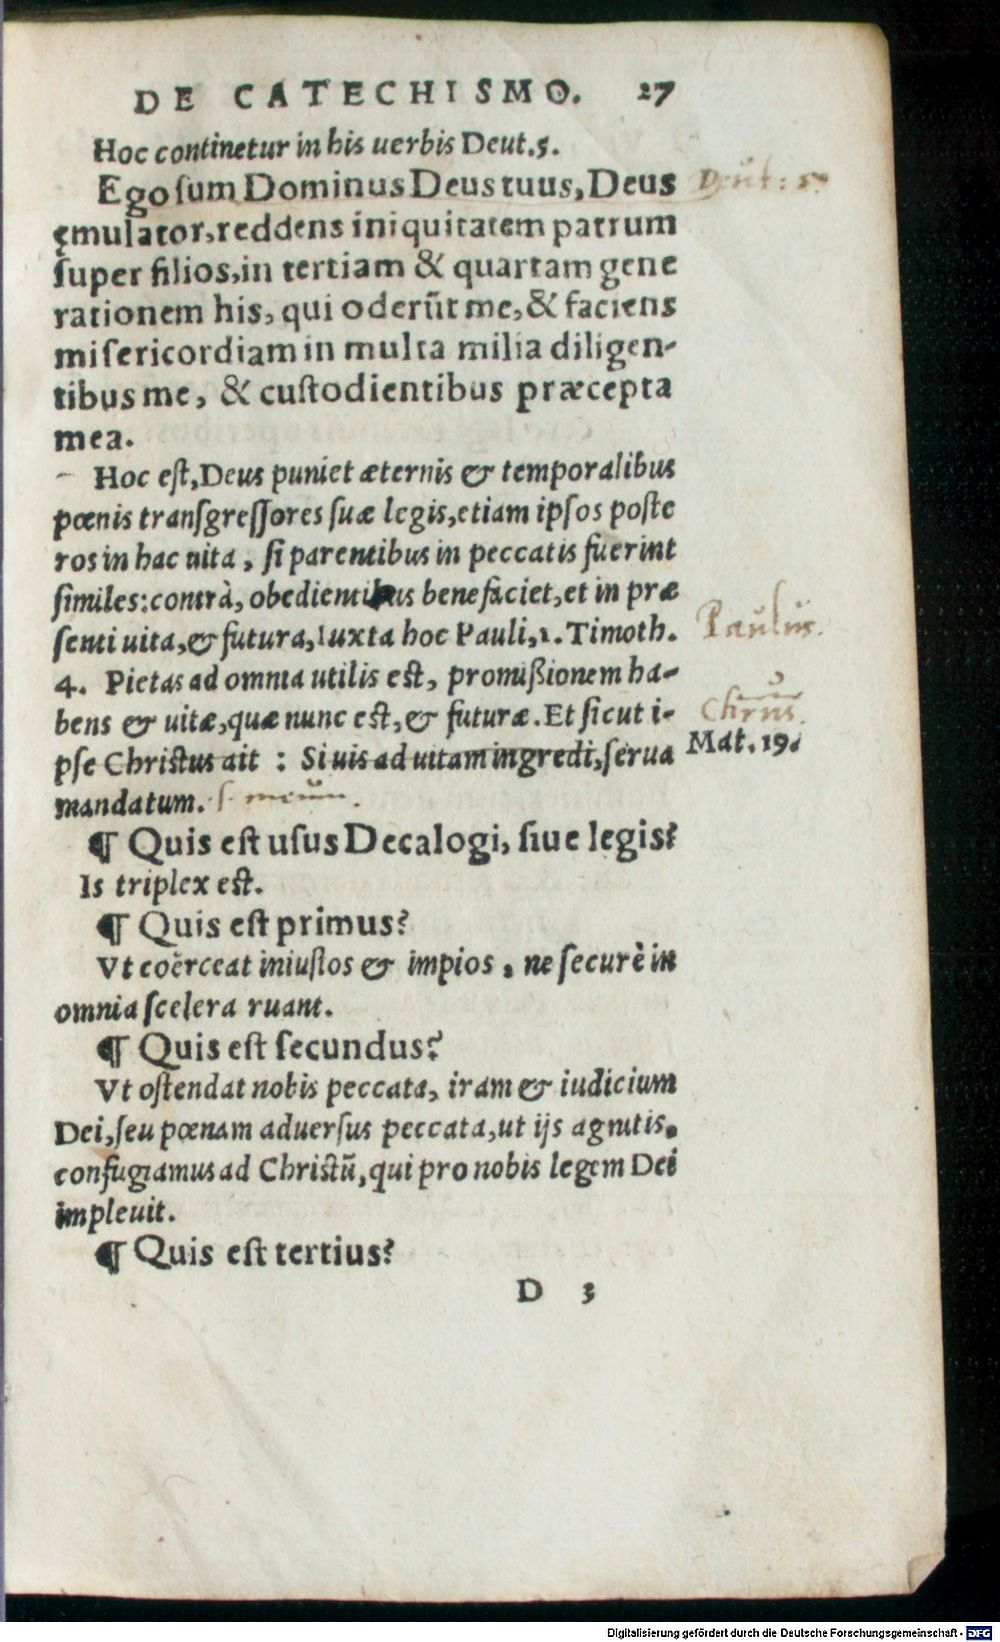 DE CATECHISMO. 27
Hoc continetur in his uerbis Deut.5.
Ego sum Dominus Deus tuus, Deus
Deut: 5
ęmulator, reddens iniquitatem patrum
super filios, in tertiam & quartam gene
rationem his, qui oderūt me, & faciens
misericordiam in multa milia diligen-
tibus me, & custodientibus præcepta
mea.
Hoc est, Deus puniet æternis & temporalibus
pœnis transgressores suæ legis, etiam ipsos poste
ros in hac uita, si parentibus in peccatis fuerint
similes: contrà, obedientibus benefaciet, et in præ
senti uita, & futura, Iuxta hoc Pauli, 1. Timoth.
Paulus.
4. Pietas ad omnia utilis est, promißionem ha-
bens & uitæ, quæ nunc est, & futuræ. Et sicut i-
Chrūs.
pse Christus ait : Si uis ad uitam ingredi, serua
Mat. 19.
mandatum. s. meum.
¶ Quis est usus Decalogi, siue legis?
Is triplex est.
¶ Quis est primus?
Vt coërceat iniustos & impios, ne securè in
omnia scelera ruant.
¶ Quis est secundus?
Vt ostendat nobis peccata, iram & iudicium
Dei, seu pœnam aduersus peccata, ut ijs agnitis.
confugiamus ad Christū, qui pro nobis legem Dei
impleuit.
¶ Quis est tertius?
D 3
Digitalisierung gefördert durch die Deutsche Forschungsgemeinschaft - DFG